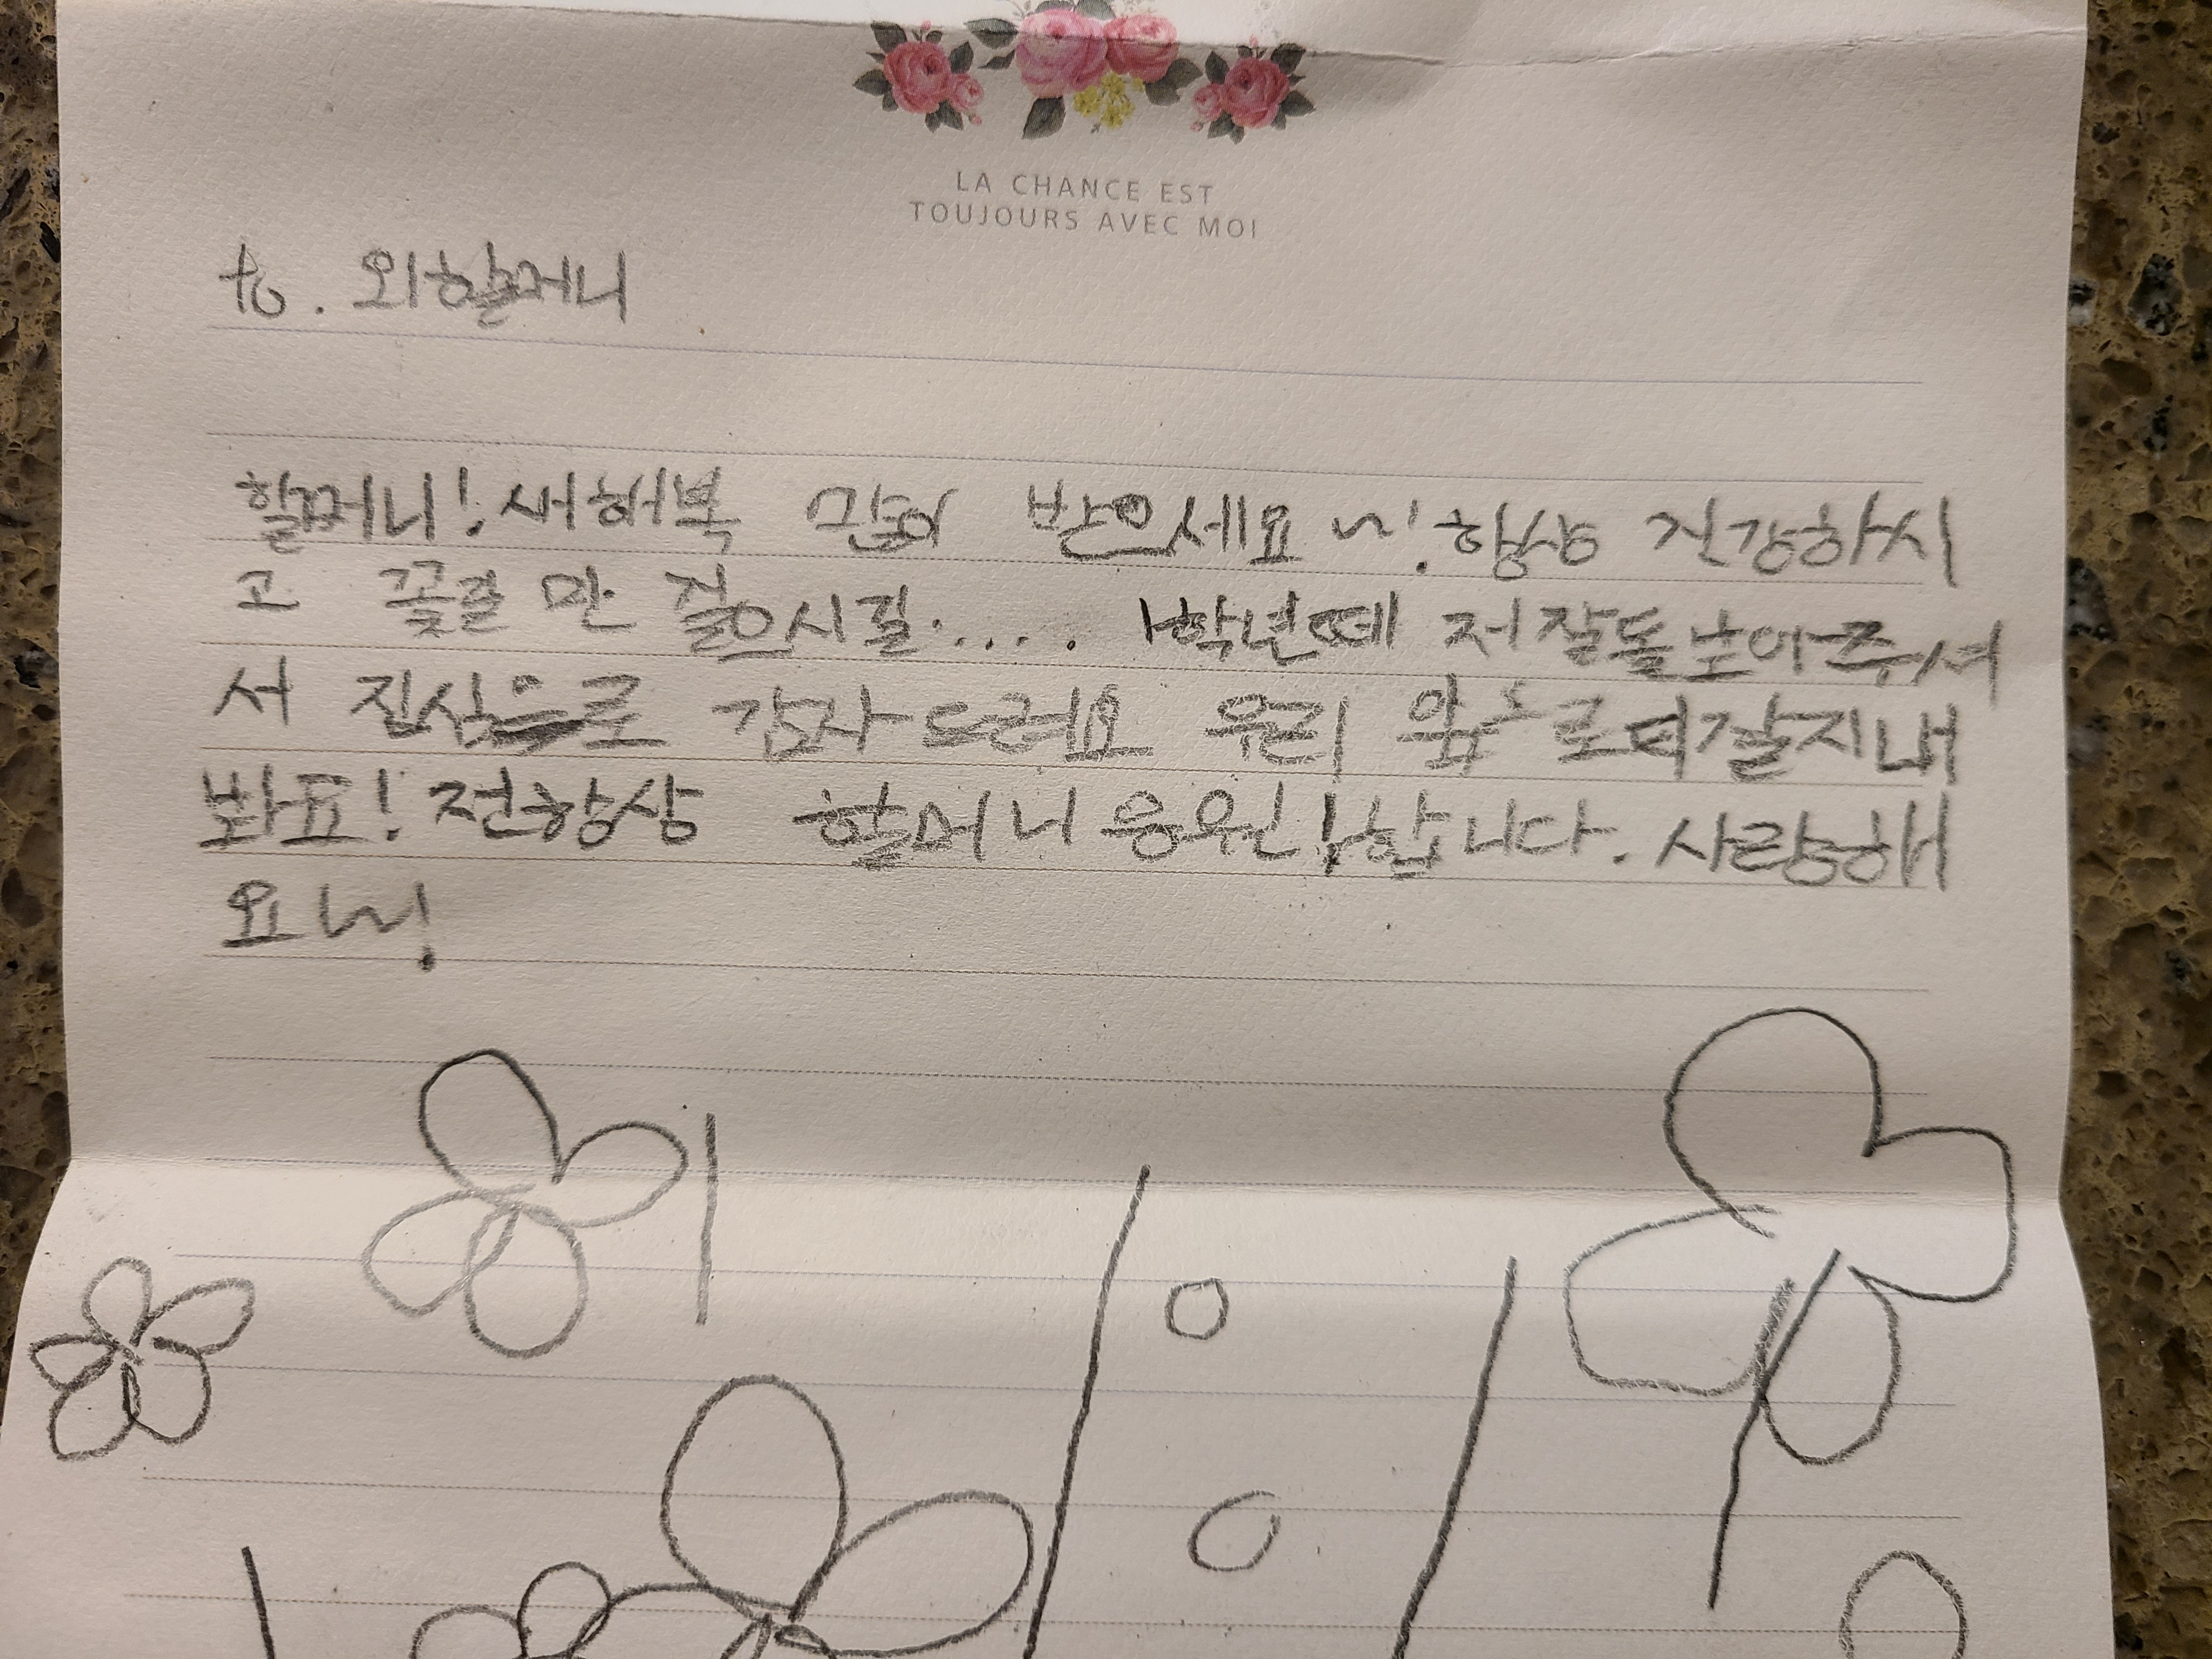 LA CHANCE EST
TOUJOURS AVEC MOI
to. 외할머니
할머니! 새해복 많이 받으세요~! 항상 건강하시
고 꽃길 만 걸으시길..... 1학년때 저 잘돌보아주셔
서 진심으로 감사드려요 우리 앞으로더잘지내
봐요! 전항상 할머니응원합니다. 사랑해
요~!